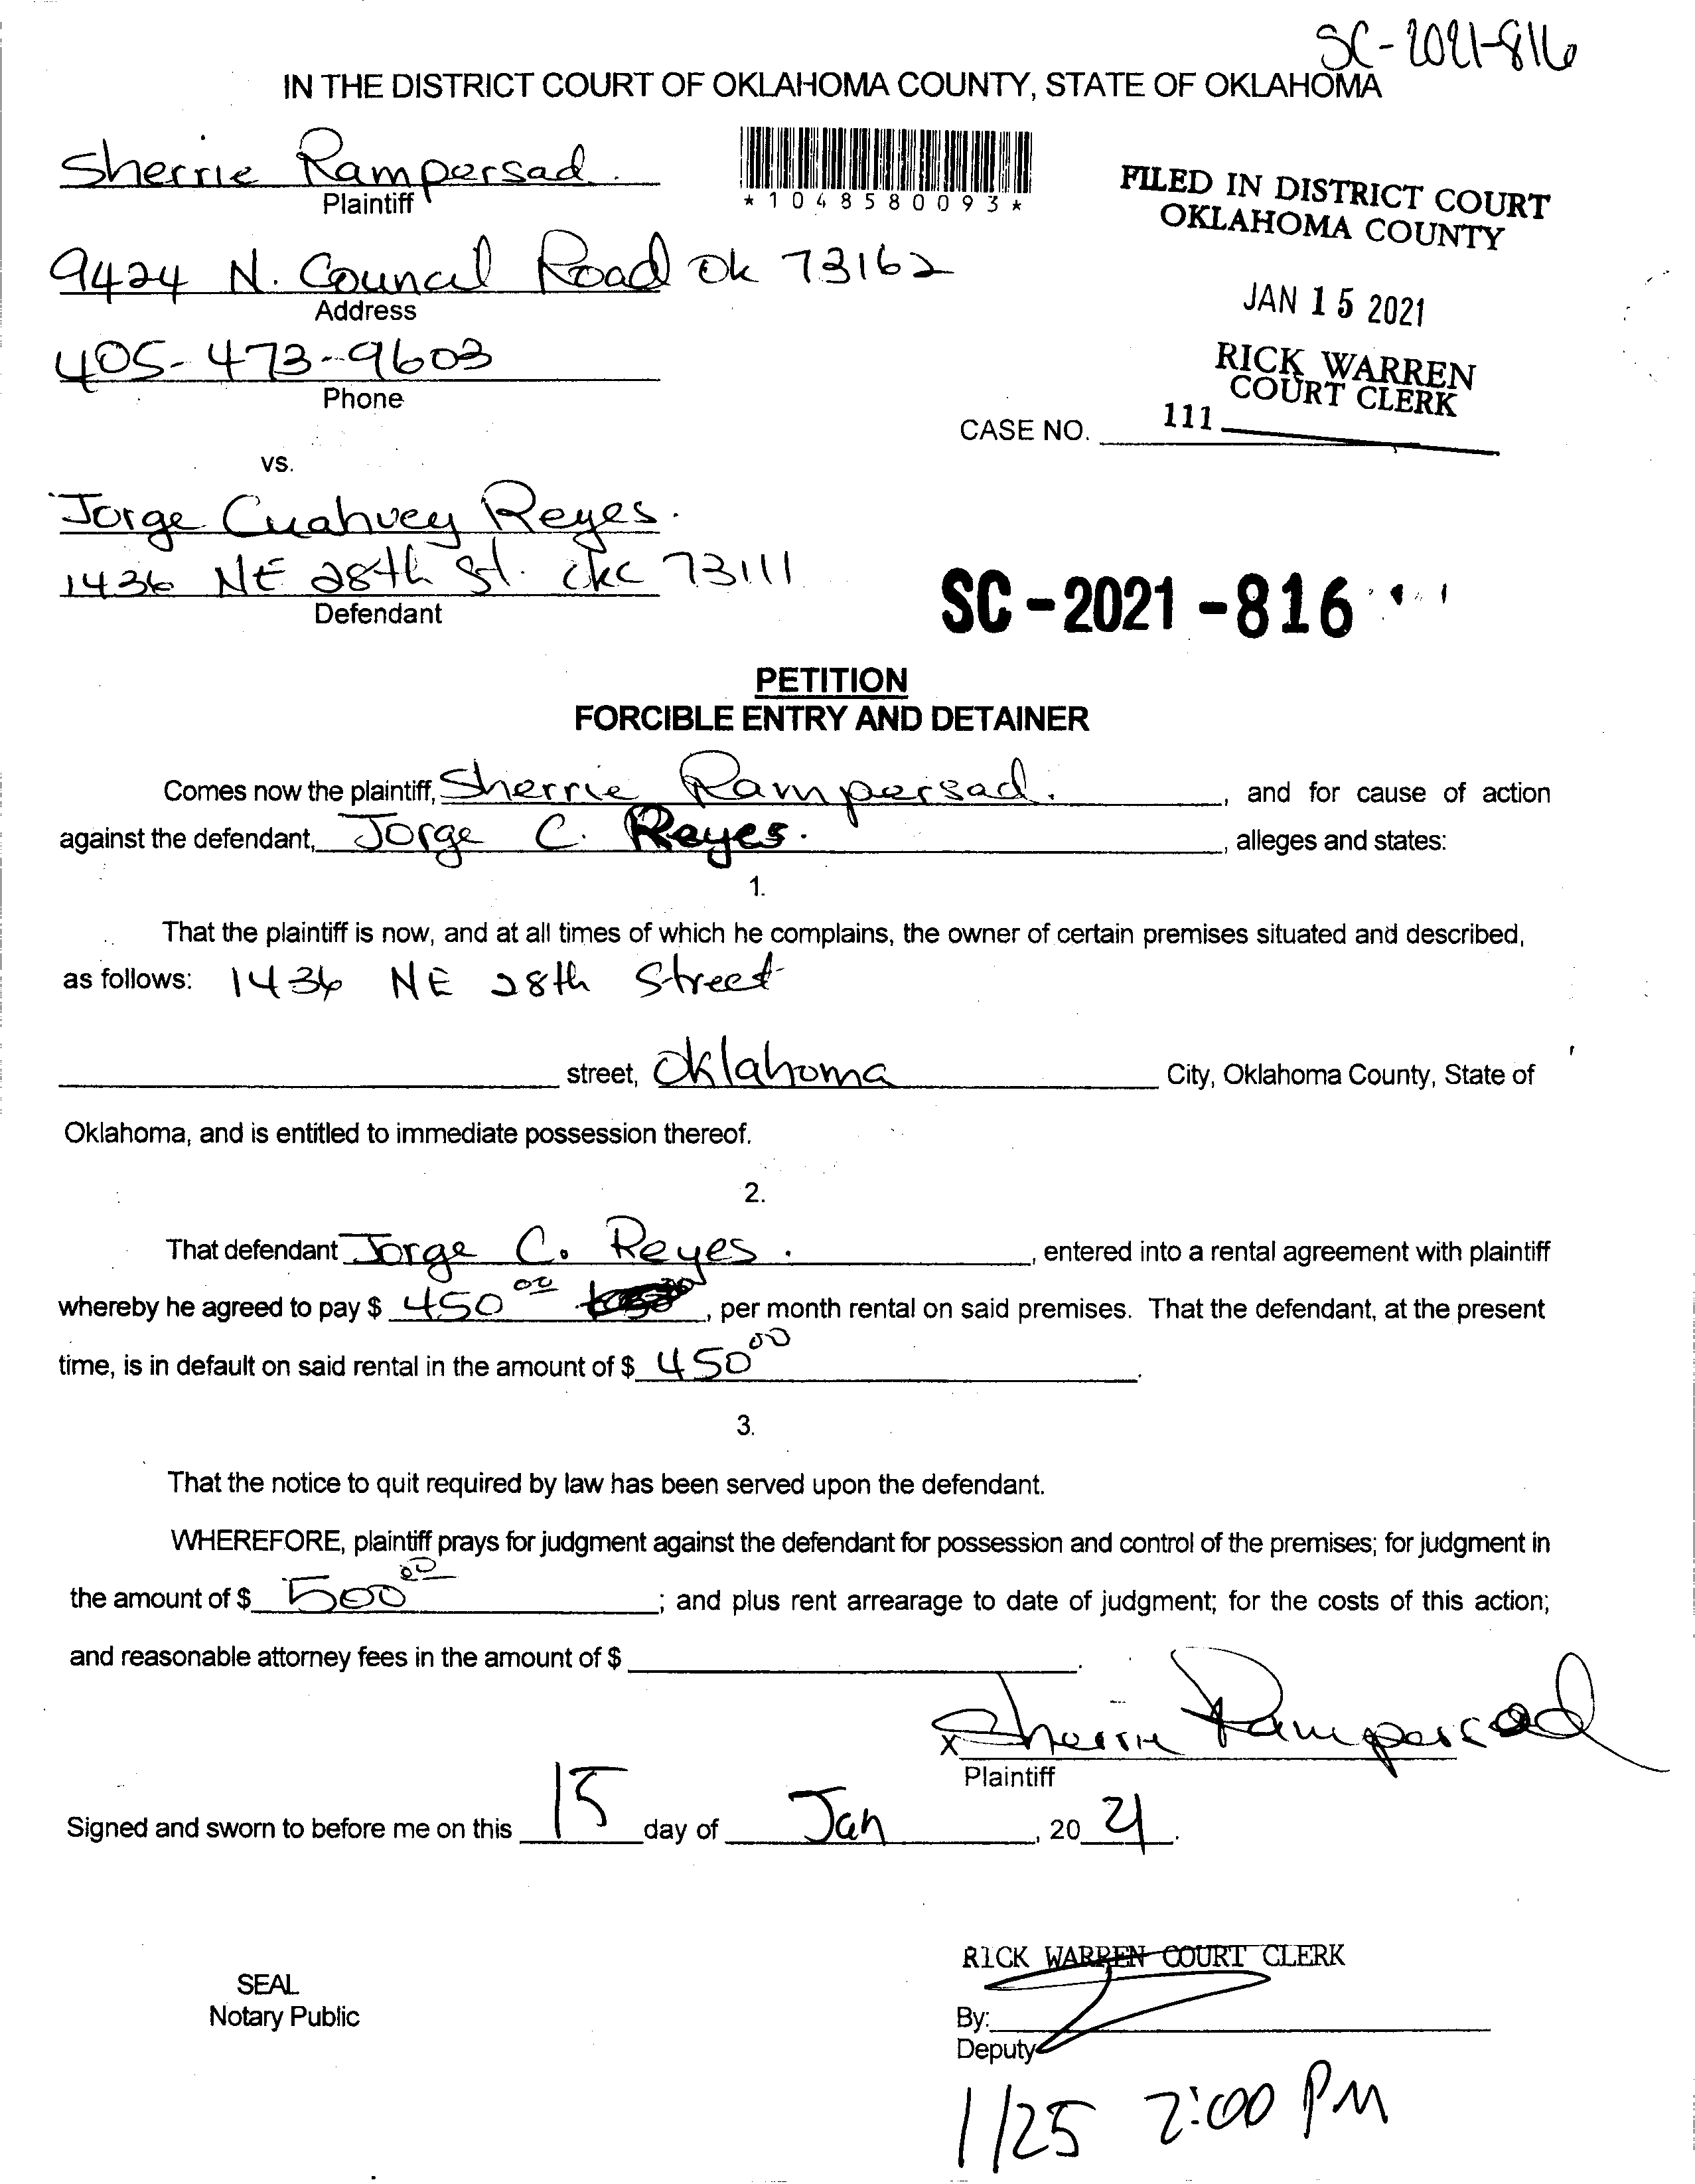 SC-2021-816
IN THE DISTRICT COURT OF OKLAHOMA COUNTY, STATE OF OKLAHOMA
Sherrie Rampersad.
Plaintiff
*1048580093*
FILED IN DISTRICT COURT
OKLAHOMA COUNTY
9424 N. Council Road Ok 73162
Address
JAN 15 2021
405-473-9603
Phone
RICK WARREN
COURT CLERK
CASE NO. 111
vs.
Jorge Cuahuey Reyes.
1436 NE 28th St. okc 73111
Defendant
SC-2021-816
PETITION
FORCIBLE ENTRY AND DETAINER
Comes now the plaintiff, Sherrie Rampersad. , and for cause of action
against the defendant, Jorge C. Reyes. , alleges and states:
1.
That the plaintiff is now, and at all times of which he complains, the owner of certain premises situated and described,
as follows: 1436 NE 28th Street
street, Oklahoma City, Oklahoma County, State of
Oklahoma, and is entitled to immediate possession thereof.
2.
That defendant Jorge C. Reyes. , entered into a rental agreement with plaintiff
whereby he agreed to pay $ 450 00 , per month rental on said premises. That the defendant, at the present
time, is in default on said rental in the amount of $ 450 00 .
3.
That the notice to quit required by law has been served upon the defendant.
WHEREFORE, plaintiff prays for judgment against the defendant for possession and control of the premises; for judgment in
the amount of $ 500 00 ; and plus rent arrearage to date of judgment; for the costs of this action;
and reasonable attorney fees in the amount of $ .
x Sherrie Rampersad
Plaintiff
Signed and sworn to before me on this 15 day of Jan , 20 21 .
RICK WARREN COURT CLERK
SEAL
Notary Public
By:
Deputy
1/25 2:00 PM